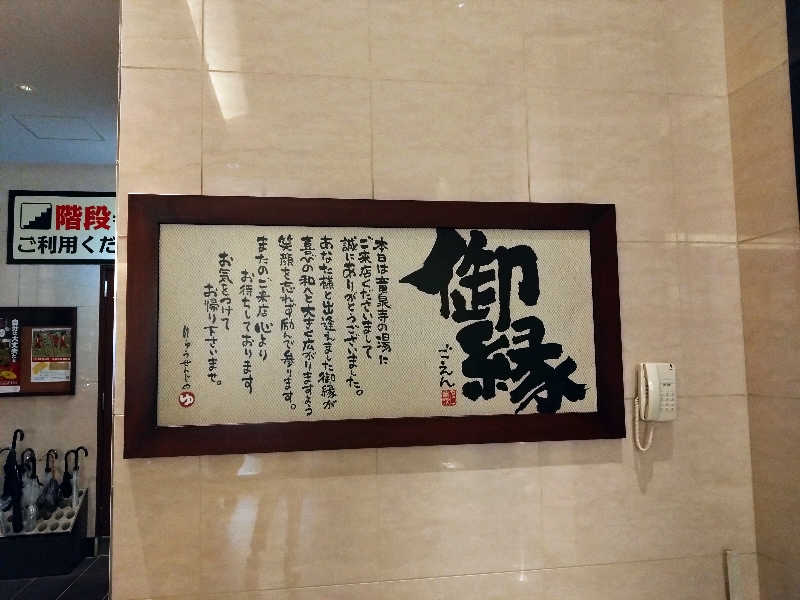 御縁
ごえん
本日は竜泉寺の湯に
ご来店くださいまして
誠にありがとうございました。
あなた様と出逢えました御縁が
喜べの和へと大きく広がりますよう
笑顔を忘れず励んで参ります。
またのご来店 心より
お待ちしております
お気をつけて
お帰り下さいませ。
りゅうせんじの
ゆ
階段
ご利用くだ